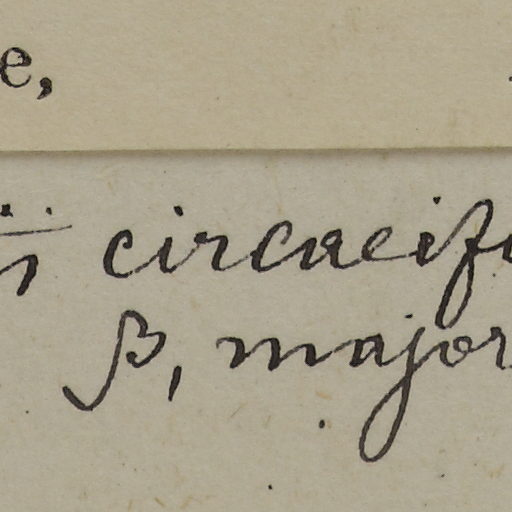 e,
circaeifo
β, major